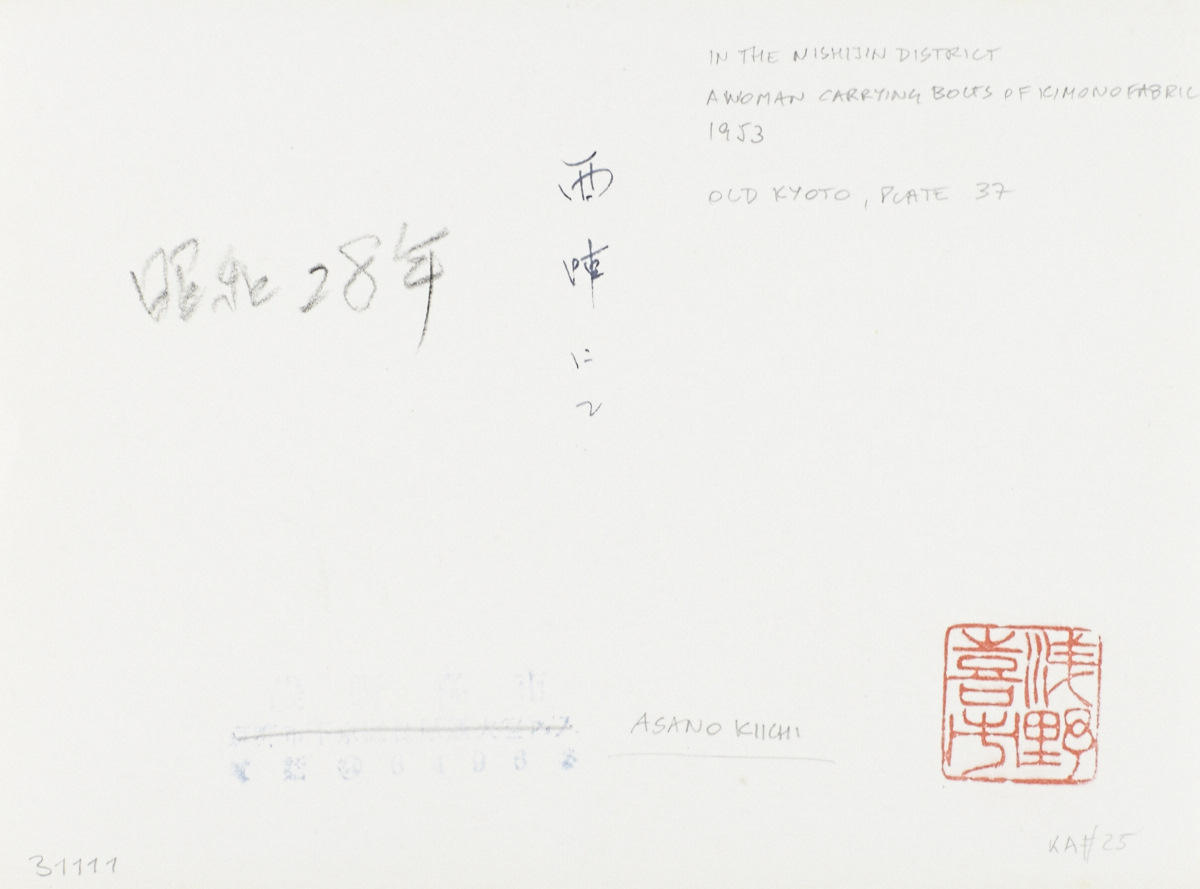 IN THE NISHIJIN DISTRICT
A WOMAN CARRYING BOLTS OF KIMONO FABRIC
1953
OLD KYOTO, PLATE 37
西陣にて
昭和28年
ASANO KIICHI
浅野喜市
KA#25
31111